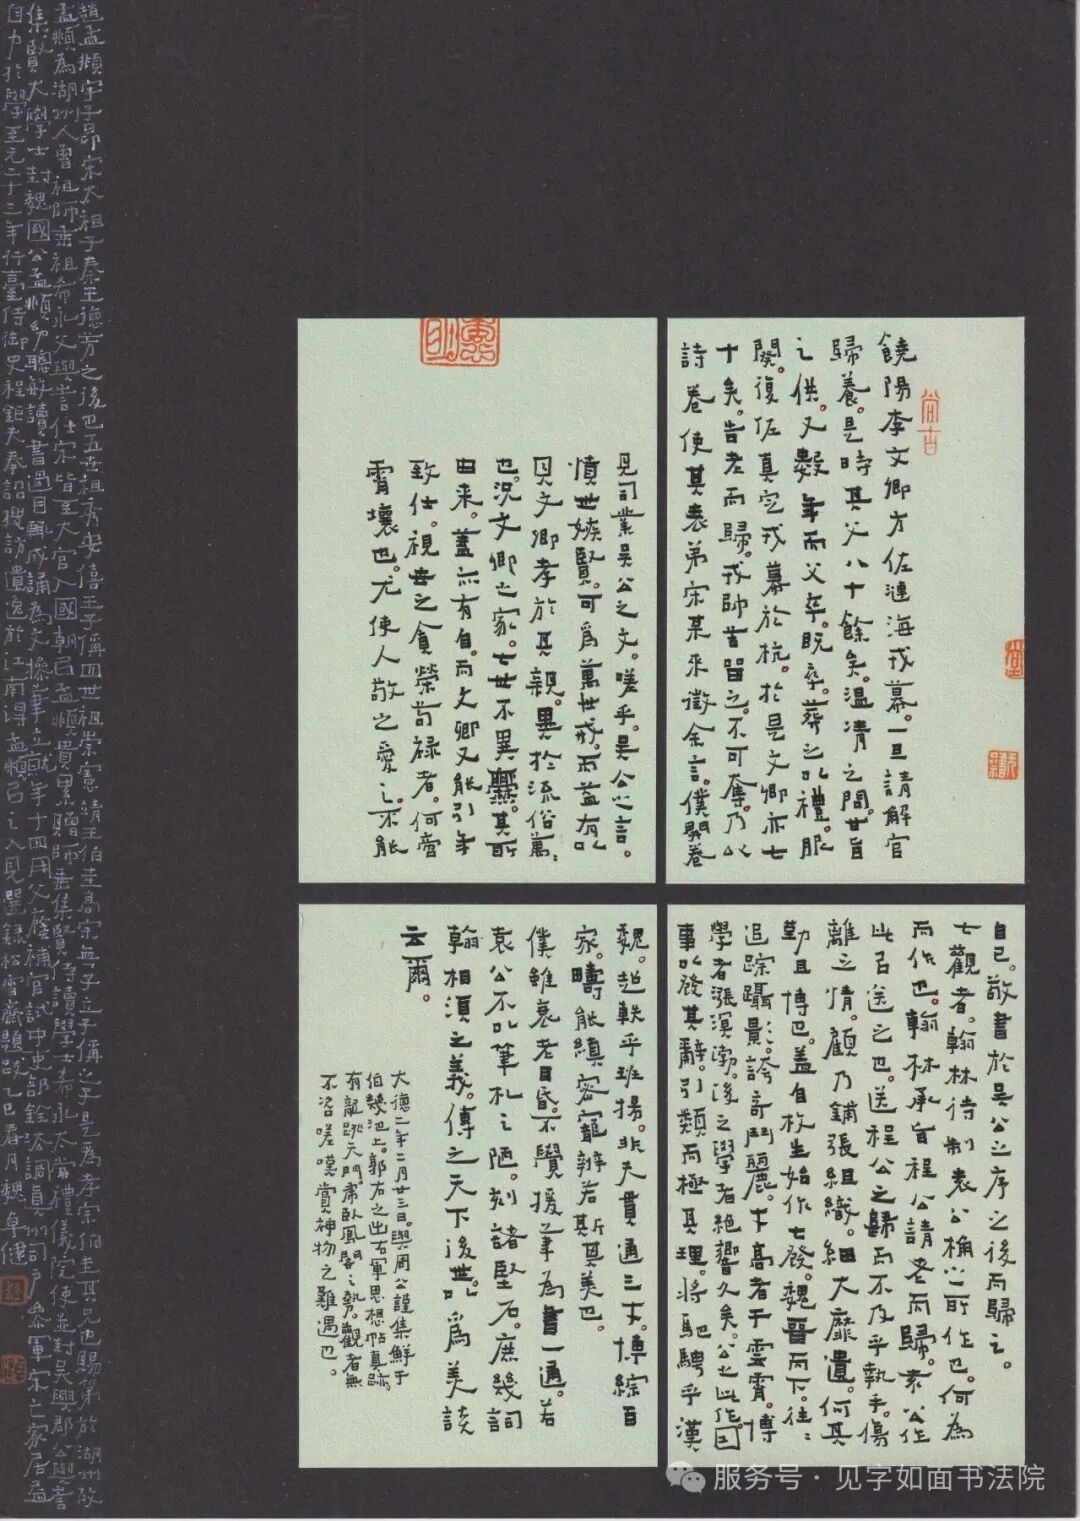 饒陽李文卿方佐漣海戎幕。一旦請解官
歸養。是時其父八十餘矣。溫凊之間。甘旨
之供。又數年而父卒。既卒。葬之以禮。服
闋。復佐真定戎幕於杭。於是文卿亦七
十矣。告老而歸。戎帥苦留之。不可奪。乃以
詩卷使其表弟宋某來徵余言。僕開卷
見司業吳公之文。嗟乎。吳公之言。
憤世嫉賢。可為萬世戒。而益有以
見文卿孝於其親。異於流俗萬々
也。況文卿之家。七世不異爨。其所
由來。蓋亦有自。而文卿又能引年
致仕。視世之貪榮苟祿者。何啻
霄壤也。尤使人敬之愛之。不能
自已。敬書於吳公之序之後而歸之。
士觀者。翰林待制袁公桷之所作也。何為
而作也。翰林承旨程公請老而歸。袁公作
此以送之也。送程公之歸而不及乎執手。傷
離之情。顧乃鋪張組織。細大靡遺。何其
勤且博也。蓋自枚生始作七發。魏晉而下。往々
追踪躡景。誇奇鬥麗。才高者干雲霄。博
學者漲溟渤。後之學者絕響久矣。公之此作。因
事以發其辭。引類而極其理。將馳騁乎漢
魏。超軼乎班揚。非夫貫通三才。博綜百
家。疇能縝密寵辨若斯其美也。
僕雖衰老目昏。不覺援筆為書一通。若
袁公不以筆札之陋。刻諸堅石。庶幾詞
翰相須之義。傳之天下後世。以為美談
云爾。
大德二年二月廿三日。與周公謹集鮮于
伯幾池上。郭右之出右軍思想帖真跡。
有龍跳天門。虎臥鳳閣之勢。觀者無
不咨嗟嘆賞神物之難遇也。
趙孟頫字子昂宋太祖子秦王德芳之後也五世祖秀安僖王子偁四世祖崇憲靖王伯圭高宗無子立子偁之子是為孝宗伯圭其兄也賜第於湖州故
孟頫為湖州人曾祖師垂祖希永父與訔仕宋皆至大官入國朝以孟頫貴累贈師垂集賢侍讀學士希永太常禮儀院使並封吳興郡公與訔
集賢大學士封魏國公孟頫幼聰敏讀書過目輒成誦為文操筆立就年十四用父廕補官試中吏部銓法調真州司戶參軍宋亡家居益
自力於學至元二十三年行臺侍御史程鉅夫奉詔搜訪遺逸於江南得孟頫以之入見選錄松雪齋題跋乙巳春月魏卓健
服务号·见字如面书法院